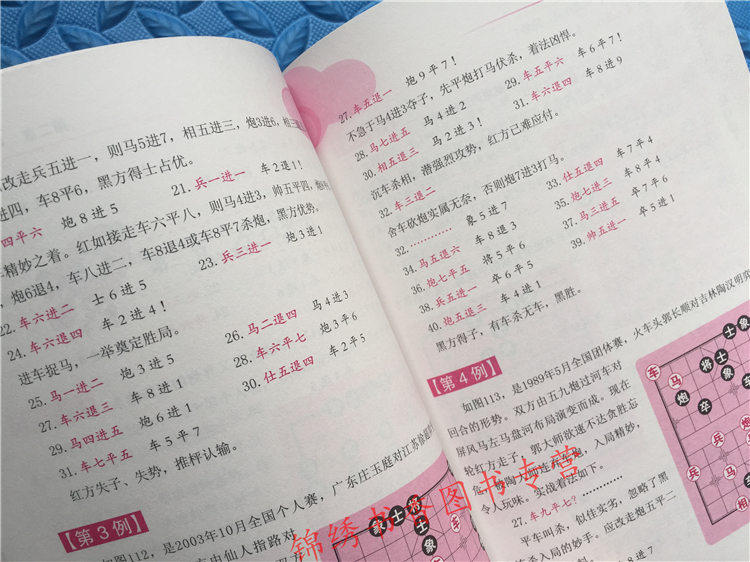 改走兵五进一，则马5进7，相五进三，炮3进6，相三
进四，车8平6，黑方得士占优。
四平六 炮8进5 21. 兵一进一 车2退1！
精妙之着。红如接走车六平八，则马4进3，帅五平四，
，炮6退4，车八进二，车8退4或车8平7杀炮，黑方优势。
22. 车六进二 士6进5 23. 兵三进一 炮3进1
24. 车六退四 车2进4！
进车捉马，一举奠定胜局。
25. 马一进二 炮3进5 26. 马二退四 马4进3
27. 车六退三 车8进1 28. 车六平七 炮3平6
29. 马四进五 炮6进1 30. 仕五退四 车2平5
31. 车七平五 车5平7
红方失子、失势，推枰认输。
【第3例】
如图112，是2003年10月全国个人赛，广东庄玉庭对江苏
仙人指路对
27. 车五退一 炮9平7！
不急于马4进3夺子，先平炮打马伏杀，着法凶悍。
28. 马七进五 马4进2 29. 车五平六 车6平7！
30. 相五退三 马2进3！ 31. 车六退四 车8进9
沉车杀相，潜强烈攻势，红方已难应付。
32. 车三退二
舍车砍炮实属无奈，否则炮7进3打马。
32. ………… 象5进7 33. 仕五退四 车7平4
34. 马五退六 车8退3 35. 炮七进三 车8平4
36. 炮七平五 将5平6 37. 马三进五 卒7平6
38. 兵五进一 卒6平5 39. 帅五进一 卒5进1
40. 炮五退三 车4进1
黑方得子，有车杀无车，黑胜。
【第4例】
如图113，是1989年5月全国团体赛，火车头郭长顺对吉林陶汉明弈
回合的形势。双方由五九炮过河车对
屏风马左马盘河布局演变而成。现在
轮红方走子，郭大师欲速不达贪胜忘
危，陶大师
入局精妙，
令人玩味。实战着法如下。
27. 车九平七？…………
平车叫杀，似佳实劣，忽略了黑
杀入局的妙手。应改走炮五平二
车 马 炮 将 士 象 士 象 卒 兵 兵 炮 马
象 士 将 士 象 车
锦绣书谷图书专营